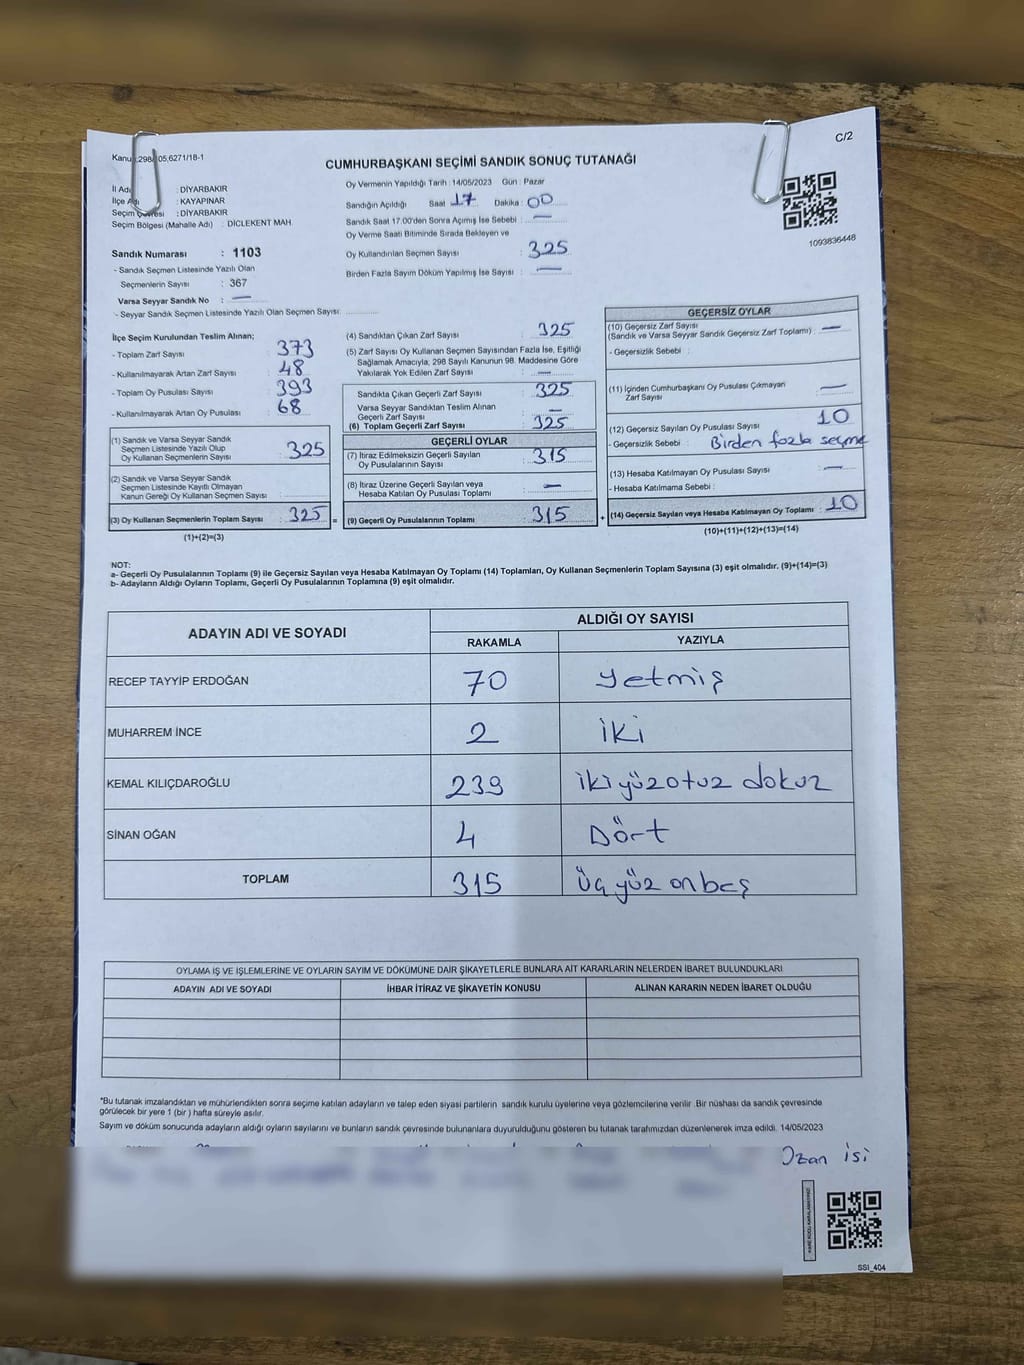 C/2
Kanu 298/105,6271/18-1
CUMHURBAŞKANI SEÇİMİ SANDIK SONUÇ TUTANAĞI
İl Adı : DİYARBAKIR
İlçe Adı : KAYAPINAR
Seçim Çevresi : DİYARBAKIR
Seçim Bölgesi (Mahalle Adı) : DİCLEKENT MAH.
Sandık Numarası : 1103
- Sandık Seçmen Listesinde Yazılı Olan
Seçmenlerin Sayısı : 367
Varsa Seyyar Sandık No : —
- Seyyar Sandık Seçmen Listesinde Yazılı Olan Seçmen Sayısı:
Oy Vermenin Yapıldığı Tarih : 14/05/2023 Gün : Pazar
Sandığın Açıldığı Saat : 17 Dakika : 00
Sandık Saat 17:00'den Sonra Açılmış İse Sebebi : —
Oy Verme Saati Bitiminde Sırada Bekleyen ve
Oy Kullandırılan Seçmen Sayısı : 325
Birden Fazla Sayım Döküm Yapılmış İse Sayısı : —
1093836448
İlçe Seçim Kurulundan Teslim Alınan;
- Toplam Zarf Sayısı 373
- Kullanılmayarak Artan Zarf Sayısı : 48
- Toplam Oy Pusulası Sayısı : 393
- Kullanılmayarak Artan Oy Pusulası : 68
(1) Sandık ve Varsa Seyyar Sandık
Seçmen Listesinde Yazılı Olup
Oy Kullanan Seçmenlerin Sayısı : 325
(2) Sandık ve Varsa Seyyar Sandık
Seçmen Listesinde Kayıtlı Olmayan
Kanun Gereği Oy Kullanan Seçmen Sayısı :
(3) Oy Kullanan Seçmenlerin Toplam Sayısı : 325 =
(1)+(2)=(3)
(4) Sandıktan Çıkan Zarf Sayısı : 325
(5) Zarf Sayısı Oy Kullanan Seçmen Sayısından Fazla İse, Eşitliği
Sağlamak Amacıyla, 298 Sayılı Kanunun 98. Maddesine Göre
Yakılarak Yok Edilen Zarf Sayısı : —
Sandıkta Çıkan Geçerli Zarf Sayısı : 325
Varsa Seyyar Sandıktan Teslim Alınan
Geçerli Zarf Sayısı : —
(6) Toplam Geçerli Zarf Sayısı : 325
GEÇERLİ OYLAR
(7) İtiraz Edilmeksizin Geçerli Sayılan
Oy Pusulalarının Sayısı : 315
(8) İtiraz Üzerine Geçerli Sayılan veya
Hesaba Katılan Oy Pusulası Toplamı : —
(9) Geçerli Oy Pusulalarının Toplamı : 315 +
GEÇERSİZ OYLAR
(10) Geçersiz Zarf Sayısı
(Sandık ve Varsa Seyyar Sandık Geçersiz Zarf Toplamı) : —
- Geçersizlik Sebebi :
(11) İçinden Cumhurbaşkanı Oy Pusulası Çıkmayan
Zarf Sayısı : —
(12) Geçersiz Sayılan Oy Pusulası Sayısı : 10
- Geçersizlik Sebebi : Birden fazla seçme
(13) Hesaba Katılmayan Oy Pusulası Sayısı : —
- Hesaba Katılmama Sebebi :
(14) Geçersiz Sayılan veya Hesaba Katılmayan Oy Toplamı : 10
(10)+(11)+(12)+(13)=(14)
NOT:
a- Geçerli Oy Pusulalarının Toplamı (9) ile Geçersiz Sayılan veya Hesaba Katılmayan Oy Toplamı (14) Toplamları, Oy Kullanan Seçmenlerin Toplam Sayısına (3) eşit olmalıdır. (9)+(14)=(3)
b- Adayların Aldığı Oyların Toplamı, Geçerli Oy Pusulalarının Toplamına (9) eşit olmalıdır.
ADAYIN ADI VE SOYADI
ALDIĞI OY SAYISI
RAKAMLA YAZIYLA
RECEP TAYYİP ERDOĞAN 70 yetmiş
MUHARREM İNCE 2 iki
KEMAL KILIÇDAROĞLU 239 ikiyüzotuz dokuz
SİNAN OĞAN 4 Dört
TOPLAM 315 üçyüz onbeş
OYLAMA İŞ VE İŞLEMLERİNE VE OYLARIN SAYIM VE DÖKÜMÜNE DAİR ŞİKAYETLERLE BUNLARA AİT KARARLARIN NELERDEN İBARET BULUNDUKLARI
ADAYIN ADI VE SOYADI İHBAR İTİRAZ VE ŞİKAYETİN KONUSU ALINAN KARARIN NEDEN İBARET OLDUĞU
*Bu tutanak imzalandıktan ve mühürlendikten sonra seçime katılan adayların ve talep eden siyasi partilerin sandık kurulu üyelerine veya gözlemcilerine verilir. Bir nüshası da sandık çevresinde
görülecek bir yere 1 (bir ) hafta süreyle asılır.
Sayım ve döküm sonucunda adayların aldığı oyların sayılarını ve bunların sandık çevresinde bulunanlara duyurulduğunu gösteren bu tutanak tarafımızdan düzenlenerek imza edildi. 14/05/2023
Ozan isi
KARE KODU KARALAMAYINIZ!
SSI_404